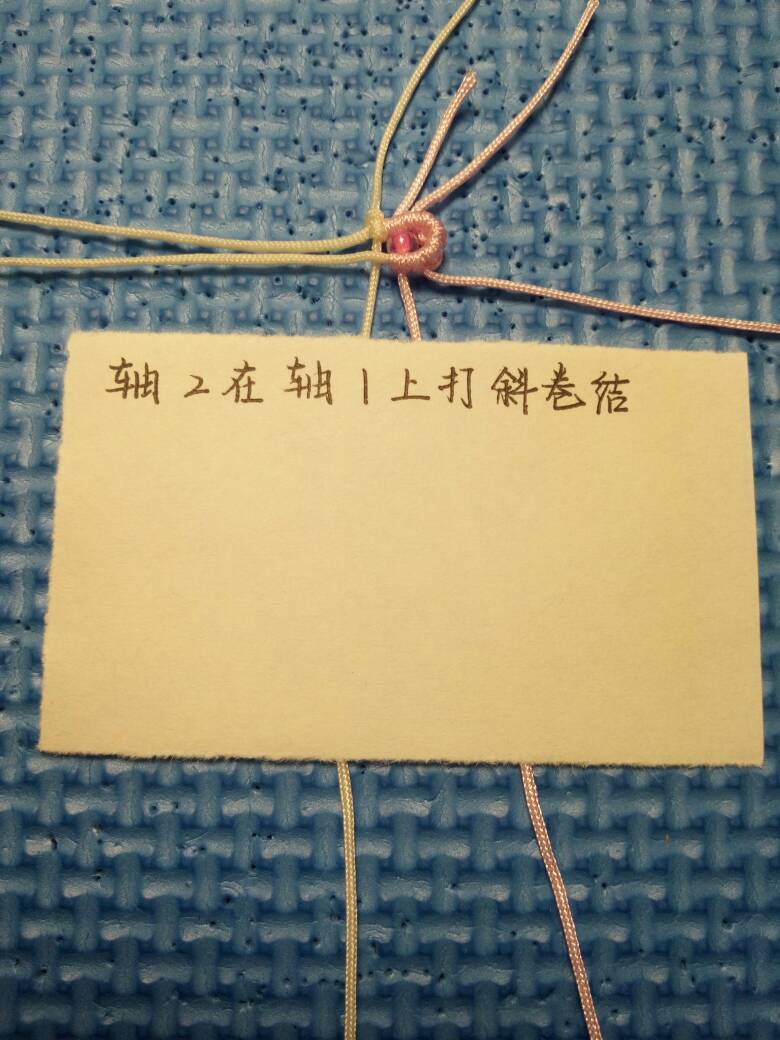 轴2在轴1上打斜卷结